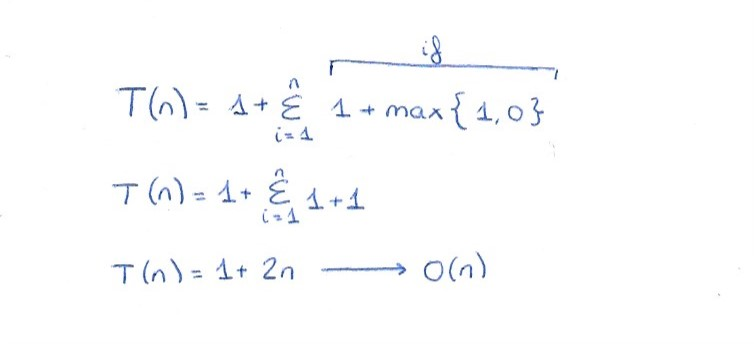 if
T(n) = 1 + Σ_{i=1}^{n} 1 + max{1,0}
T(n) = 1 + Σ_{i=1}^{n} 1+1
T(n) = 1 + 2n ⟶ O(n)